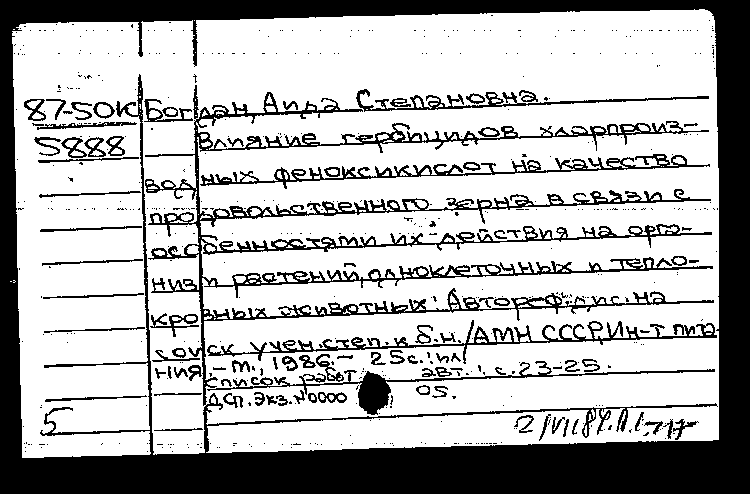 87-50К Богдан, Аида Степановна.
5888 Влияние гербицидов хлорпроиз-
водных феноксикислот на качество
продовольственного зерна в связи с
особенностями их действия на орга-
низм растений, одноклеточных и тепло-
кровных животных: Автореф. дис. на
соиск учен. степ. к.б.н. / АМН СССР, Ин-т пита
ния. - М., 1986 - 25с.: ил
Список работ авт.: с. 23-25.
ДСП. Экз. №0000 05.
5